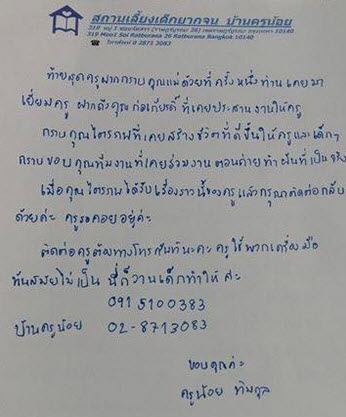 สถานเลี้ยงเด็กยากจน บ้านครูน้อย
319 หมู่ 1 ซอยราษฎร์บูรณะ 26 เขตราษฎร์บูรณะ กรุงเทพฯ 10140
319 Moo1 Soi Ratburana 26 Ratburana Bangkok 10140
โทรศัพท์ 0 2871 3083
ท้ายสุดครูฝากกราบคุณแม่ด้วยที่ครั้งหนึ่งท่านเคยมา
เยี่ยมครู ฝากถึงคุณก่อเกียรติ์ ที่เคยประสานงานให้ครู
กราบคุณไตรภพที่เคยสร้างชีวิตที่ดีขึ้นให้ครูและเด็กๆ
กราบขอบคุณทีมงานที่เคยร่วมงาน ตอนถ่ายทำฝันที่เป็นจริง
เมื่อคุณไตรภพได้รับเรื่องราวนี้ของครูแล้วกรุณาติดต่อกลับ
ด้วยค่ะ ครูรอคอยอยู่ค่ะ
ติดต่อครูต้องทางโทรศัพท์นะคะ ครูใช้พวกเครื่องมือ
ทันสมัยไม่เป็น นี่ก็วานเด็กทำให้ค่ะ
0915100383
บ้านครูน้อย 02-8713083
ขอบคุณค่ะ
ครูน้อย ทิมกุล